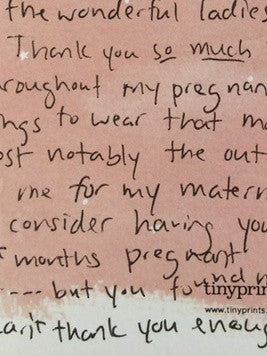 the wonderful ladies
Thank you so much
roughout my pregnan
ngs to wear that ma
ost notably the out
me for my matern
consider having you
months pregnant
---- but you found m
tinyprin
www.tinyprints.
can't thank you enoug